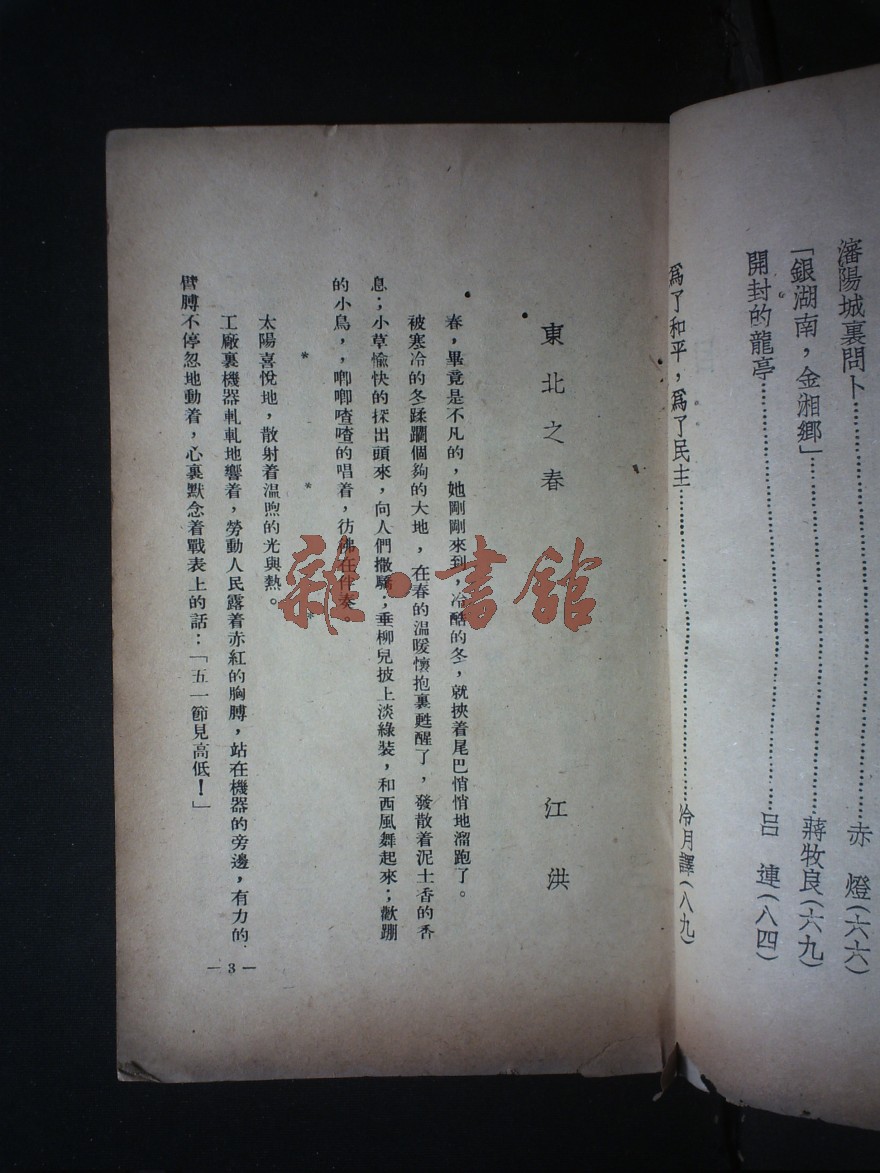 瀋陽城裏問卜……赤 燈(六六)
「銀湖南，金湘鄉」……蔣牧良(六九)
開封的龍亭……呂 連(八四)
爲了和平，爲了民主……冷月譯(八九)
東北之春 江 洪
春，畢竟是不凡的，她剛剛來到，冷酷的冬，就挾着尾巴悄悄地溜跑了。
被寒冷的冬蹂躪個夠的大地，在春的温暖懷抱裏甦醒了，發散着泥土香的香
息；小草愉快的探出頭來，向人們撒驕；垂柳兒披上淡綠裝，和西風舞起來；歡蹦
的小鳥，，唧唧喳喳的唱着，彷彿在伴奏。
* * *
太陽喜悅地，散射着温煦的光與熱。
工廠裏機器軋軋地響着，勞動人民露着赤紅的胸膊，站在機器的旁邊，有力的
臂膊不停忽地動着，心裏默念着戰表上的話：「五一節見高低！」
— 3 —
雜·書館